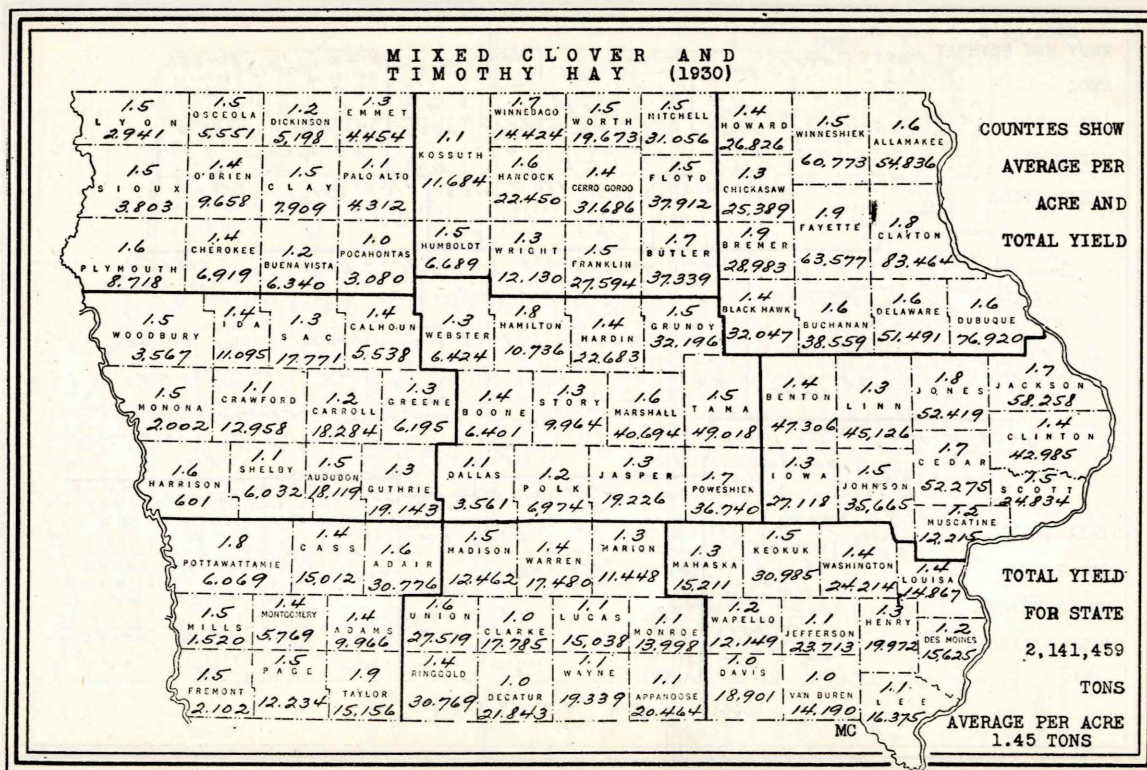 MIXED CLOVER AND
TIMOTHY HAY (1930)
COUNTIES SHOW
AVERAGE PER
ACRE AND
TOTAL YIELD
1.5
LYON
2.941
1.5
OSCEOLA
5.551
1.2
DICKINSON
5,198
1.3
EMMET
4.454
1.1
KOSSUTH
11.684
1.7
WINNEBAGO
14.424
1.5
WORTH
19.673
1.5
MITCHELL
31.056
1.4
HOWARD
26.826
1.5
WINNESHIEK
60.773
1.6
ALLAMAKEE
54.836
1.5
SIOUX
3.803
1.4
O'BRIEN
9.658
1.5
CLAY
7.909
1.1
PALO ALTO
4.312
1.6
HANCOCK
22.450
1.4
CERRO GORDO
31.686
1.5
FLOYD
37.912
1.3
CHICKASAW
25.389
1.9
FAYETTE
63.577
1.8
CLAYTON
83.464
1.6
PLYMOUTH
8.718
1.4
CHEROKEE
6.919
1.2
BUENA VISTA
6.340
1.0
POCAHONTAS
3.080
1.5
HUMBOLDT
6.689
1.3
WRIGHT
12.130
1.5
FRANKLIN
27.594
1.7
BUTLER
37.339
1.9
BREMER
28.983
1.5
WOODBURY
3.567
1.4
IDA
11.095
1.3
SAC
17.771
1.4
CALHOUN
5.538
1.3
WEBSTER
6.424
1.8
HAMILTON
10.736
1.4
HARDIN
22.683
1.5
GRUNDY
32.196
1.4
BLACK HAWK
32.047
1.6
BUCHANAN
38.559
1.6
DELAWARE
51.491
1.6
DUBUQUE
76.920
1.5
MONONA
2.002
1.1
CRAWFORD
12.958
1.2
CARROLL
18.284
1.3
GREENE
6.195
1.4
BOONE
6.401
1.3
STORY
9.964
1.6
MARSHALL
40.694
1.5
TAMA
49.018
1.4
BENTON
47.306
1.3
LINN
45,126
1.8
JONES
52.419
1.7
JACKSON
58.258
1.4
CLINTON
42.985
1.6
HARRISON
601
1.1
SHELBY
6.032
1.5
AUDUBON
18.119
1.3
GUTHRIE
19.143
1.1
DALLAS
3.561
1.2
POLK
6,974
1.3
JASPER
19.226
1.7
POWESHIEK
36.740
1.3
IOWA
27.118
1.5
JOHNSON
35,665
1.7
CEDAR
52.275
1.5
SCOTT
24.834
1.2
MUSCATINE
12.215
1.8
POTTAWATTAMIE
6.069
1.4
CASS
15,012
1.6
ADAIR
30.776
1.5
MADISON
12.462
1.4
WARREN
17.480
1.3
MARION
11.448
1.3
MAHASKA
15.211
1.5
KEOKUK
30.985
1.4
WASHINGTON
24.214
1.4
LOUISA
14.867
1.5
MILLS
1.520
1.4
MONTGOMERY
5.769
1.4
ADAMS
9.966
1.6
UNION
27.519
1.0
CLARKE
17.785
1.1
LUCAS
15,038
1.1
MONROE
13.998
1.2
WAPELLO
12,149
1.1
JEFFERSON
23.713
1.3
HENRY
19.972
1.2
DES MOINES
15,625
1.5
FREMONT
2.102
1.5
PAGE
12.234
1.9
TAYLOR
15,156
1.4
RINGGOLD
30.769
1.0
DECATUR
21.843
1.1
WAYNE
19.339
1.1
APPANOOSE
20.464
1.0
DAVIS
18.901
1.0
VAN BUREN
14.190
1.1
LEE
16.375
TOTAL YIELD
FOR STATE
2,141,459
TONS
AVERAGE PER ACRE
1.45 TONS
MC